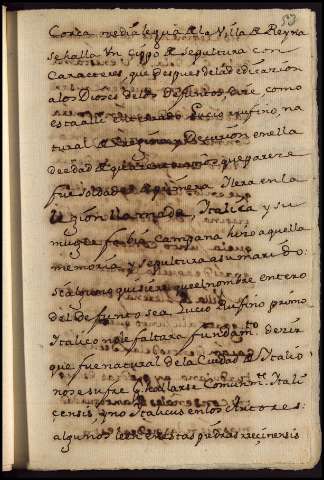 53
Cerca media legua de la Villa de Reyna
se halla un cippo de sepultura con
caracteres, que despues de la dedicacion
a los Dioses de los Difuntos, dice, como
esta alli enterrado Lucio rufino, na
tural de Regina y Decurion en ella
de edad de quarenta que parece
fue soldado de primera Ilera en la
legion llamada, Italica y su
muger fabia Campana hizo aquella
memoria y sepultura a su marido:
si alguno quisiere que el nombre entero
del Defunto sea Lucio Rufino primo
Italico no le faltara fundam.to decir
que fue natural de la Ciudad de Italic
no se sufre p.r llarse Comunm.te Itali
çensis, y no Italicus en los Autores:
algunos leen en estas piedras reginensis